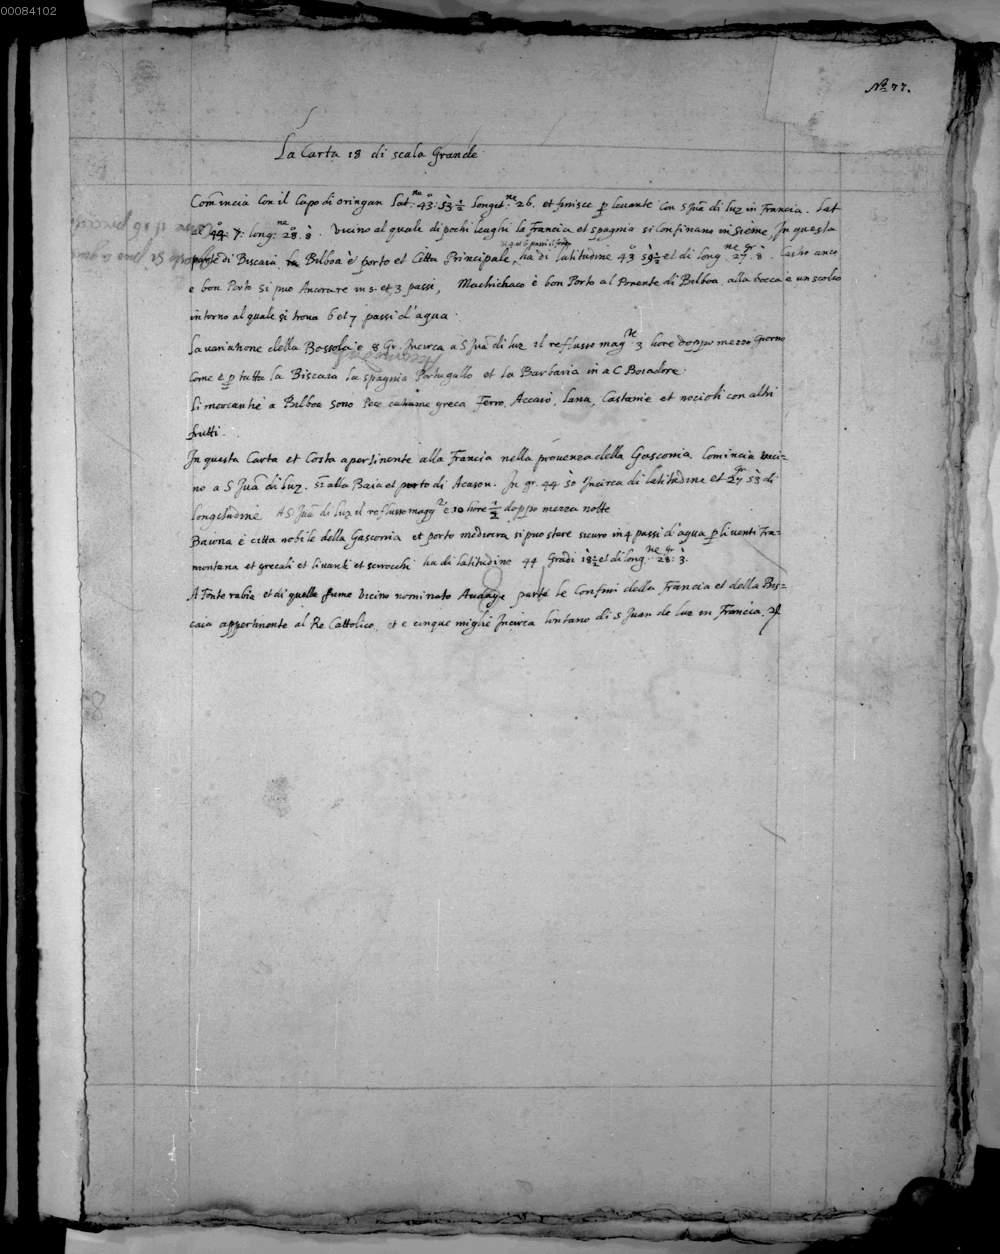 00084102
No 77.
La Carta 18 di scala Grande
Comincia Con il Capo di oringan Lat.ne 43°: 53 ½ Longit.ne 26. et finisce p levante Con S Juā di luz in Francia. Lat
44: 7: long:ne 28. 8. vicino al quale di pochi leughi la Francia et spagnia si Confinano insieme, In questa
si qui 6 passi il
parte di Biscaia Bilboa è porto et Citta Principale, ha di latitudine 43 59½ et di long.ne 27.gr 8. Castro anco
e bon Porto si puo Ancorare in 5. et 3 passi, Machichaco è bon Porto al Ponente di Bilboa alla bocca è un scolio
intorno al quale si trova 6 et 7 passi d'agua.
La variatione della Bossola è 8 Gr. Incirca a S Juā di luz il reflusso mag.re 3 hore doppo mezzo Giorno
come è p tutta la Biscaia la spagnia Portugallo et la Barbaria in a C Boiadore.
Li mercantie a Bilboa sono Pece greca Ferro, Acciaio, Lana, Castanie et nocioli con altri
frutti.
In questa Carta et Costa apertinente alla Francia nella provenza della Gasconia Comincia vici=
no a S Juā di Luz. alla Baia et porto di Acason. In gr. 44 50 Incirca di latitudine et 27gr 53 di
longitudine A S Juā di luz il reflusso magg.re è 10 hore ½ doppo mezza notte
Baiona è citta nobile della Gasconia et porto mediocra si puo stare sicuro in 4 passi d'agua p li venti Tra=
montana et grecali et livanti et scirocchi ha di latitudine 44 Gradi 18½ et di long.ne 28.gr 3.
A Fonte rabia et di quelle fiume vicino nominato Audaye parte le Confini della Francia et della Bis=
caia appertinente al Re Cattolico, et e cinque miglie Incirca lontano di S Juan de luz in Francia.